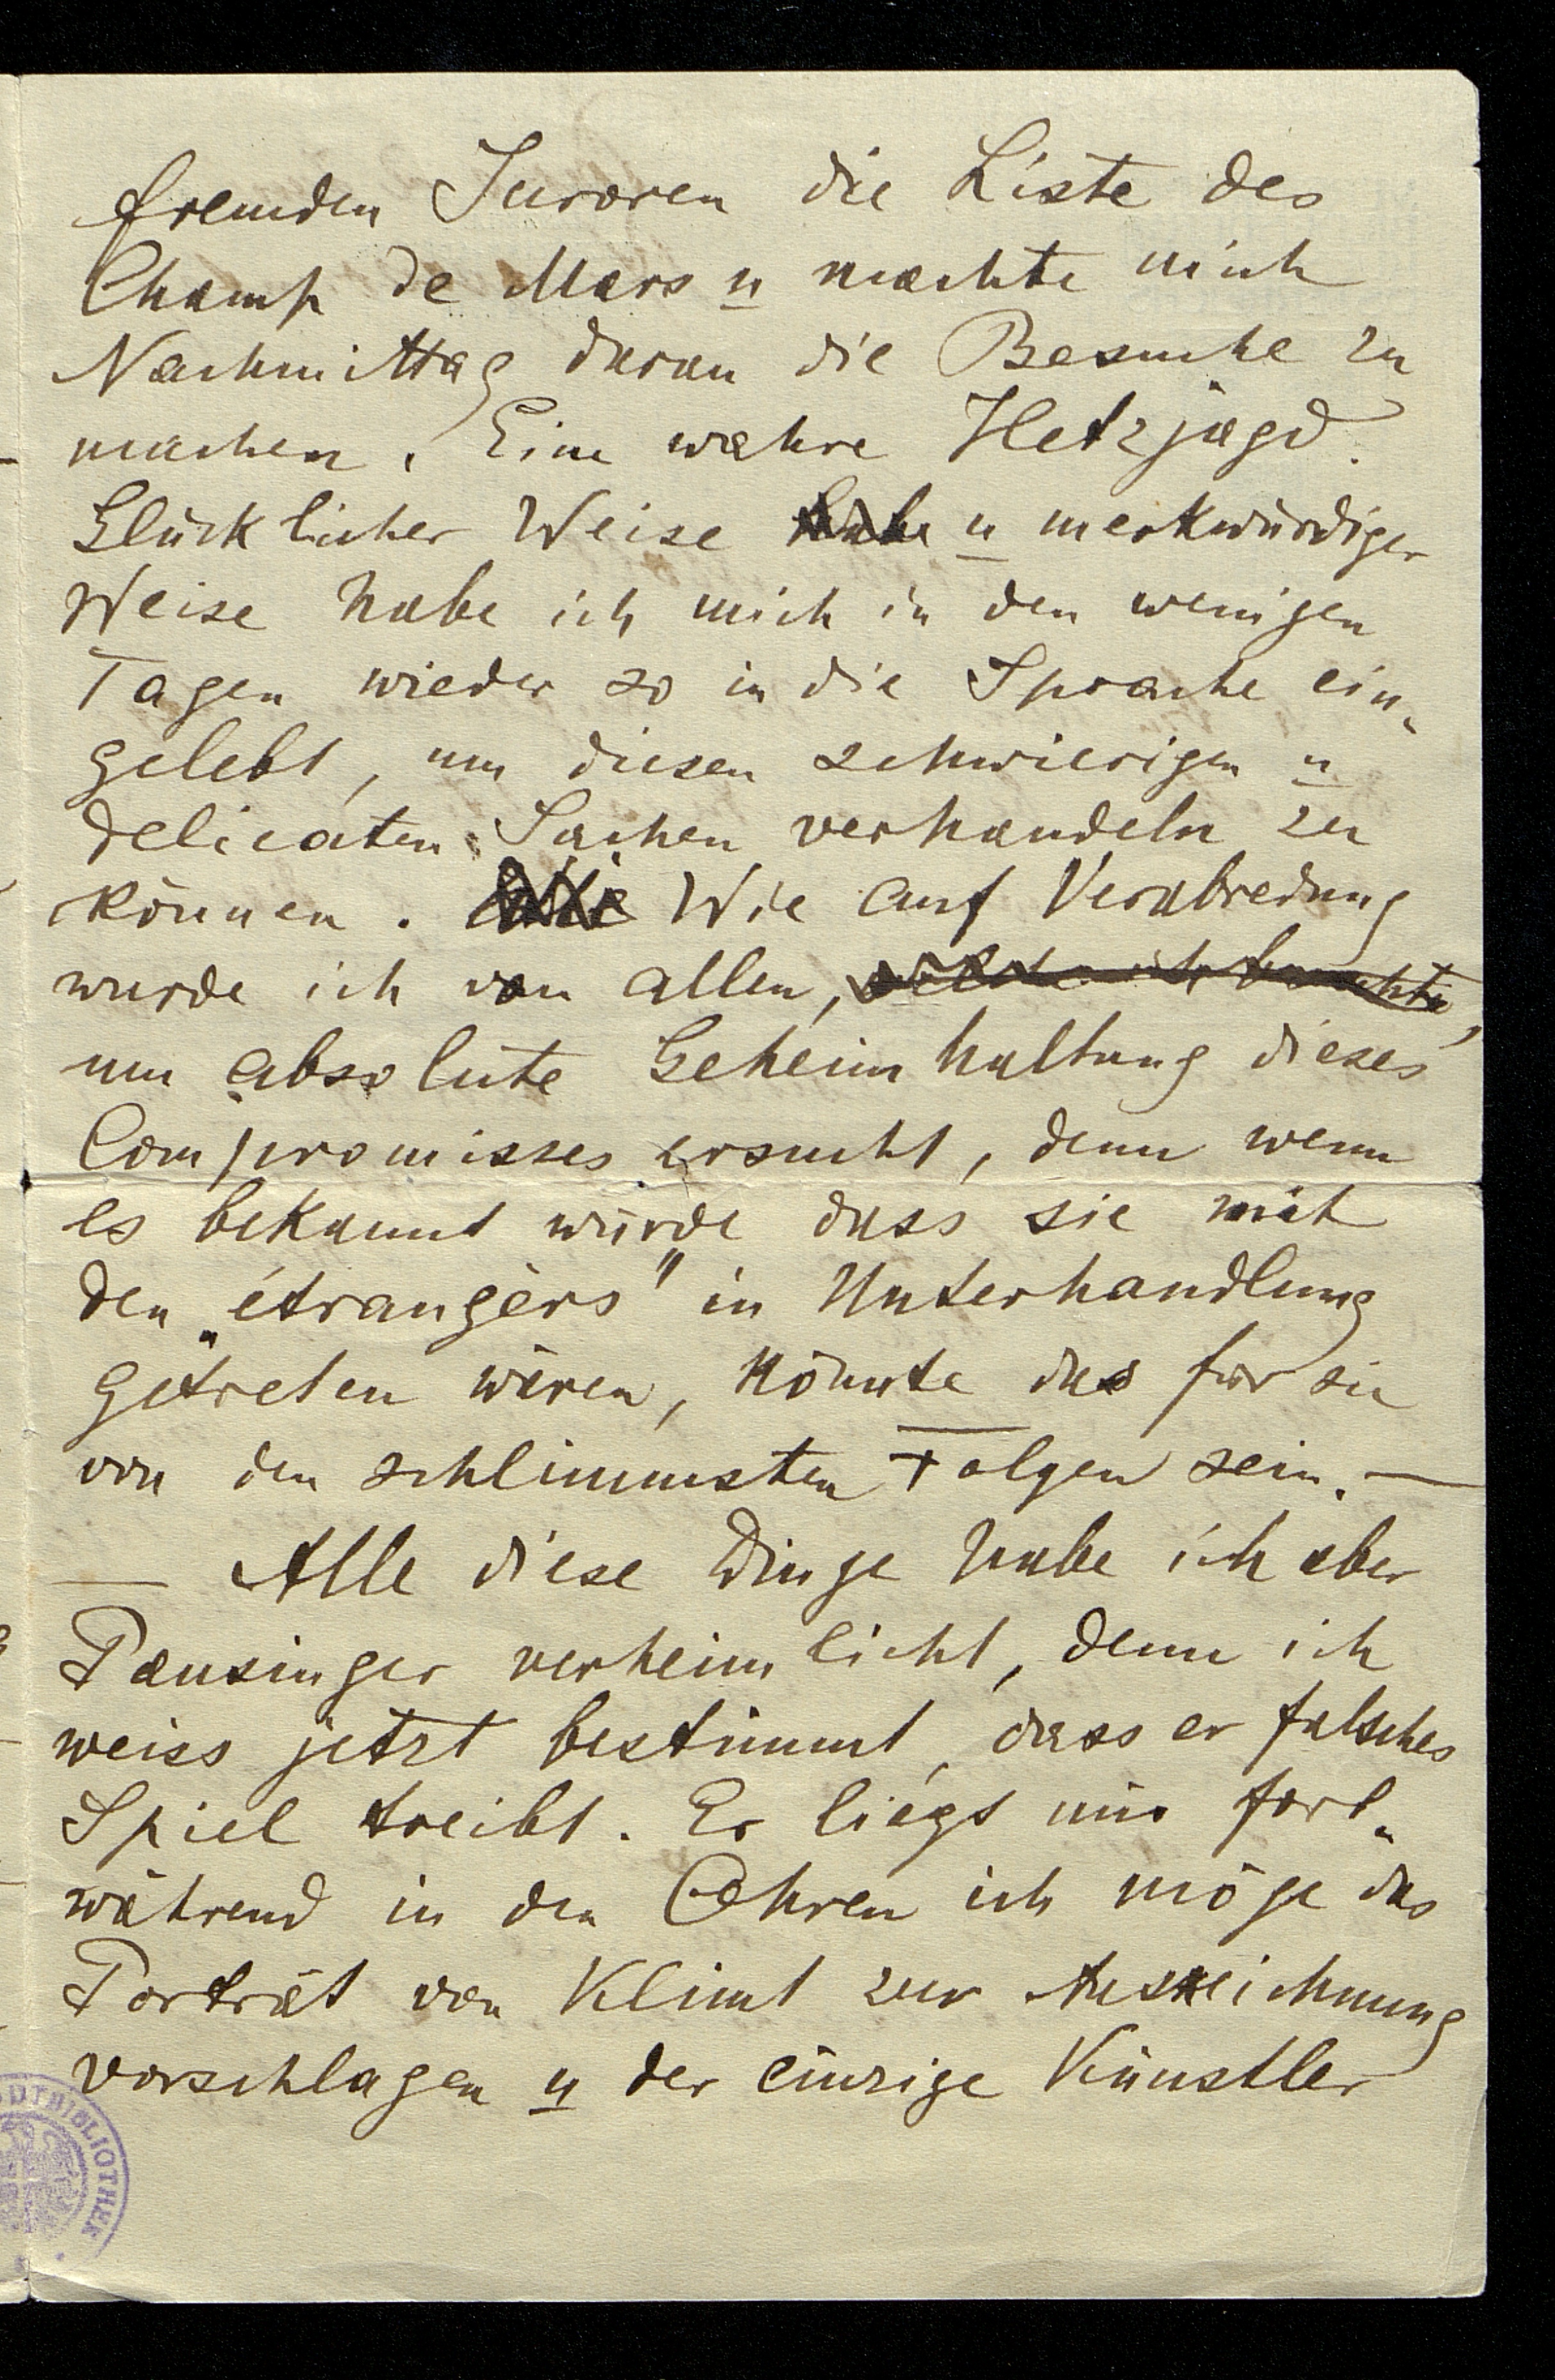 fremden Juroren die Liste des
Champ de Mars u machte mich
Nachmittag daran die Besuche zu
machen. Eine wahre Hetzjagd.
Glücklicher Weise habe u merkwürdiger
Weise habe ich mich in den wenigen
Tagen wieder so in die Sprache ein„
gelebt, um diesen schwierigen u
delicaten Sachen verhandeln zu
können. Wie auf Verabredung
wurde ich von allen, welche ich besuchte,
um absolute Geheimhaltung dieses
Compromisses ersucht, denn wenn
es bekannt würde dass sie mit
den „étrangèrs" in Unterhandlung
getreten wären, könnte das für sie
von den schlimmsten Folgen sein. —
— Alle diese Dinge habe ich aber
Pausinger verheimlicht, denn ich
weiss jetzt bestimmt, dass er falsches
Spiel treibt. Er liegt mir fort„
während in den Ohren ich möge das
Porträt von Klimt zur Auszeichnung
vorschlagen u der einzige Künstler
DTBIBLIOTHEK